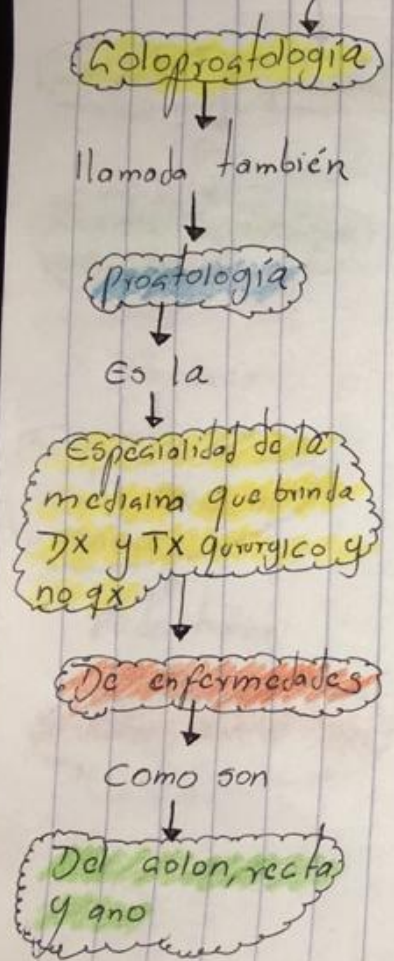 Coloproctología
llamada también
Proctología
Es la
Especialidad de la
medicina que brinda
DX y TX qururgico y
no qx
De enfermedades
Como son
Del colon, recta
y ano